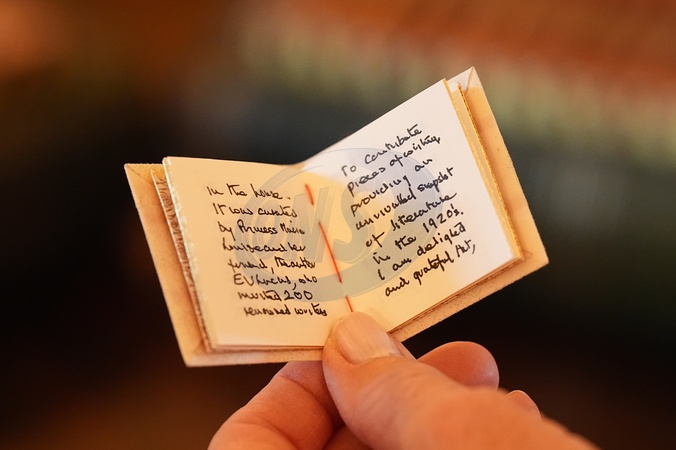 in the house.
It was curated
by Princess Marie
Louise and her
friend, the author
EV Lucas, who
invited 200
renowned writers
to contribute
pieces of writing,
providing an
unrivalled snapshot
of literature
in the 1920's.
I am delighted
and grateful that,